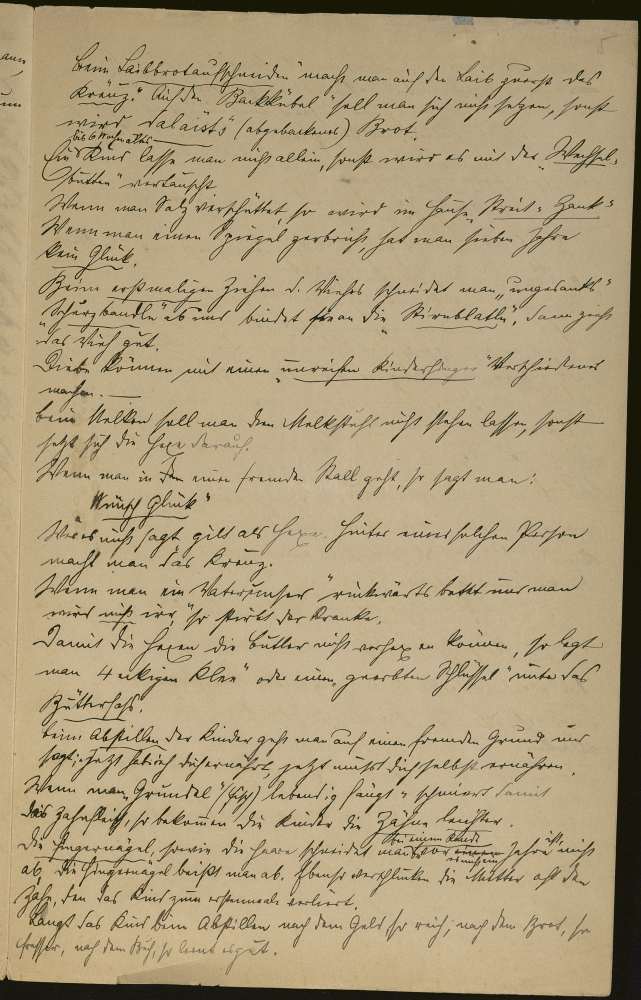 beim „Laibbrotaufschneiden“ macht man auf den Laib zuerst das
Kreuz. Auf den „Backkübel“ soll man sich nicht setzen, sonst
wird dalaists (abgebackenes) Brot.
bis 6 Wochen altes
Ein Kind lasse man nicht allein, sonst wird es mit der „Wechsel-
butten“ vertauscht.
Wenn man Salz verschüttet, so wird im Hause Streit = Zank =
Wenn man einen Spiegel zerbricht, hat man sieben Jahre
kein Glück.
Beim erstmaligen Ziehen d. Viehes schneidet man „ungesankts“
„Schurzbandle“ ab und bindet man die „Stirnblattln“, dann zieht
das Vieh gut.
Diebe können mit einem „unreifen Kinderfinger“ Verschiedenes
machen. —
beim Melken soll man den Melkstuhl nicht stehen lassen, sonst
setzt sich die Hexe darauf.
Wenn man in den einen fremden Stall geht, so sagt man:
Wünsch Glück“
Wer es nicht sagt gilt als Hexe. Hinter einer solchen Person
macht man das Kreuz.
Wenn man ein Vaterunser „rückwärts betet und man
wird nicht irr, so stirbt der Kranke.
Damit die Hexen die Butter nicht verhexen können, so legt
man „4 eckigen Klee“ oder einen „geerbten Schlüssel“ unter das
Butterfass.
beim Abstillen der Kinder geht man auf einen fremden Grund und
sagt: Jetzt hab ich dich ernährt, jetzt musst dich selbst ernähren.
Wenn man „Grundel“ (Fisch) lebendig fängt u schmiert damit
das Zahnfleisch, so bekommen die Kinder die Zähne leichter.
bei einem Kinde
Die Fingernägel, sowie die Haare schneidet man vor einem Jahre nicht
ab. Die Fingernägel beißt man ab. Ebenso verschlucken die Mutter oft den
Zahn, den das Kind zum erstenmale verliert.
Langt das Kind beim Abstillen nach dem Geld so reich, nach dem Brot, so
Fresser, nach dem Buch, so lernt es gut.